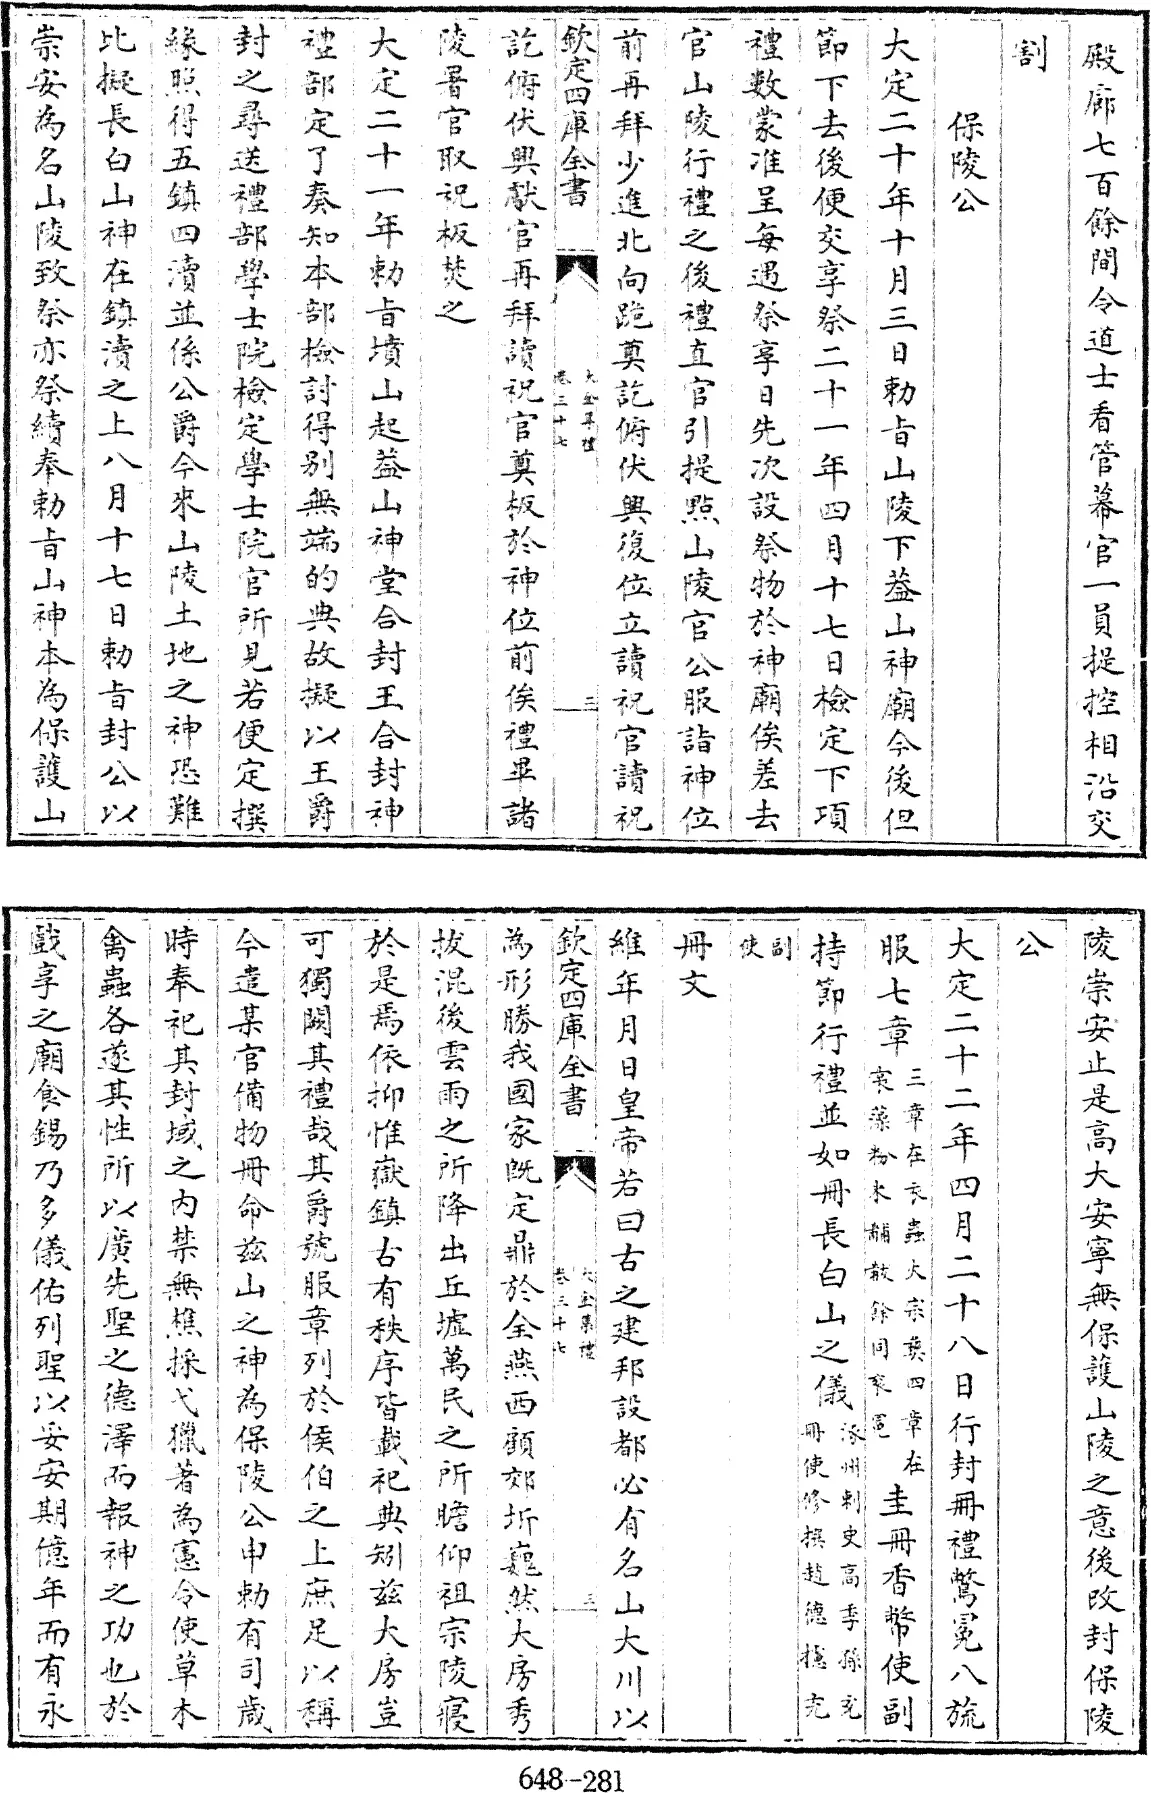 殿廊七百餘間令道士看管幕官一員提控相沿交
割
保陵公
大定二十年十月三日勅旨山陵下葢山神廟今後但
節下去後便交享祭二十一年四月十七日檢定下項
禮數蒙准呈每遇祭享日先次設祭物於神廟俟差去
官山陵行禮之後禮直官引提㸃山陵官公服詣神位
前再拜少進北向跪奠訖俯伏興復位立讀祝官讀祝
欽定四庫全書
大金集禮
卷三十七
三
訖俯伏興獻官再拜讀祝官奠板於神位前俟禮畢諸
陵署官取祝板焚之
大定二十一年勅旨墳山起葢山神堂合封王合封神
禮部定了奏知本部檢討得別無端的典故擬以王爵
封之尋送禮部學士院檢定學士院官所見若便定撰
緣照得五鎮四瀆並係公爵今來山陵土地之神恐難
比擬長白山神在鎮瀆之上八月十七日勅旨封公以
崇安為名山陵致祭亦祭續奉勅旨山神本為保護山
陵崇安止是高大安寧無保護山陵之意後改封保陵
公
大定二十二年四月二十八日行封冊禮驚冕八旒
服七章三章在衣蟲火宗彛四章在
裳藻粉米黼黻餘同衮冕
圭冊香幣使副
持節行禮並如冊長白山之儀涿州刺史高季孫充
冊使修撰趙德㨿充
副
使
冊文
維年月日皇帝若曰古之建邦設都必有名山大川以
欽定四庫全書
大金集禮
卷三十七
三
為形勝我國家既定鼎於全燕西顧郊圻巍然大房秀
拔混後雲雨之所降出丘墟萬民之所瞻仰祖宗陵寢
於是焉依抑惟嶽鎮古有秩序皆載祀典矧茲大房豈
可獨闕其禮哉其爵號服章列於侯伯之上庶足以稱
今遣某官備物冊命茲山之神為保陵公申勅有司歲
時奉祀其封域之内禁無樵採弋獵著為憲令使草木
禽蟲各遂其性所以廣先聖之德澤而報神之功也於
戲享之廟食錫乃多儀佑列聖以妥安期億年而有永
648-281